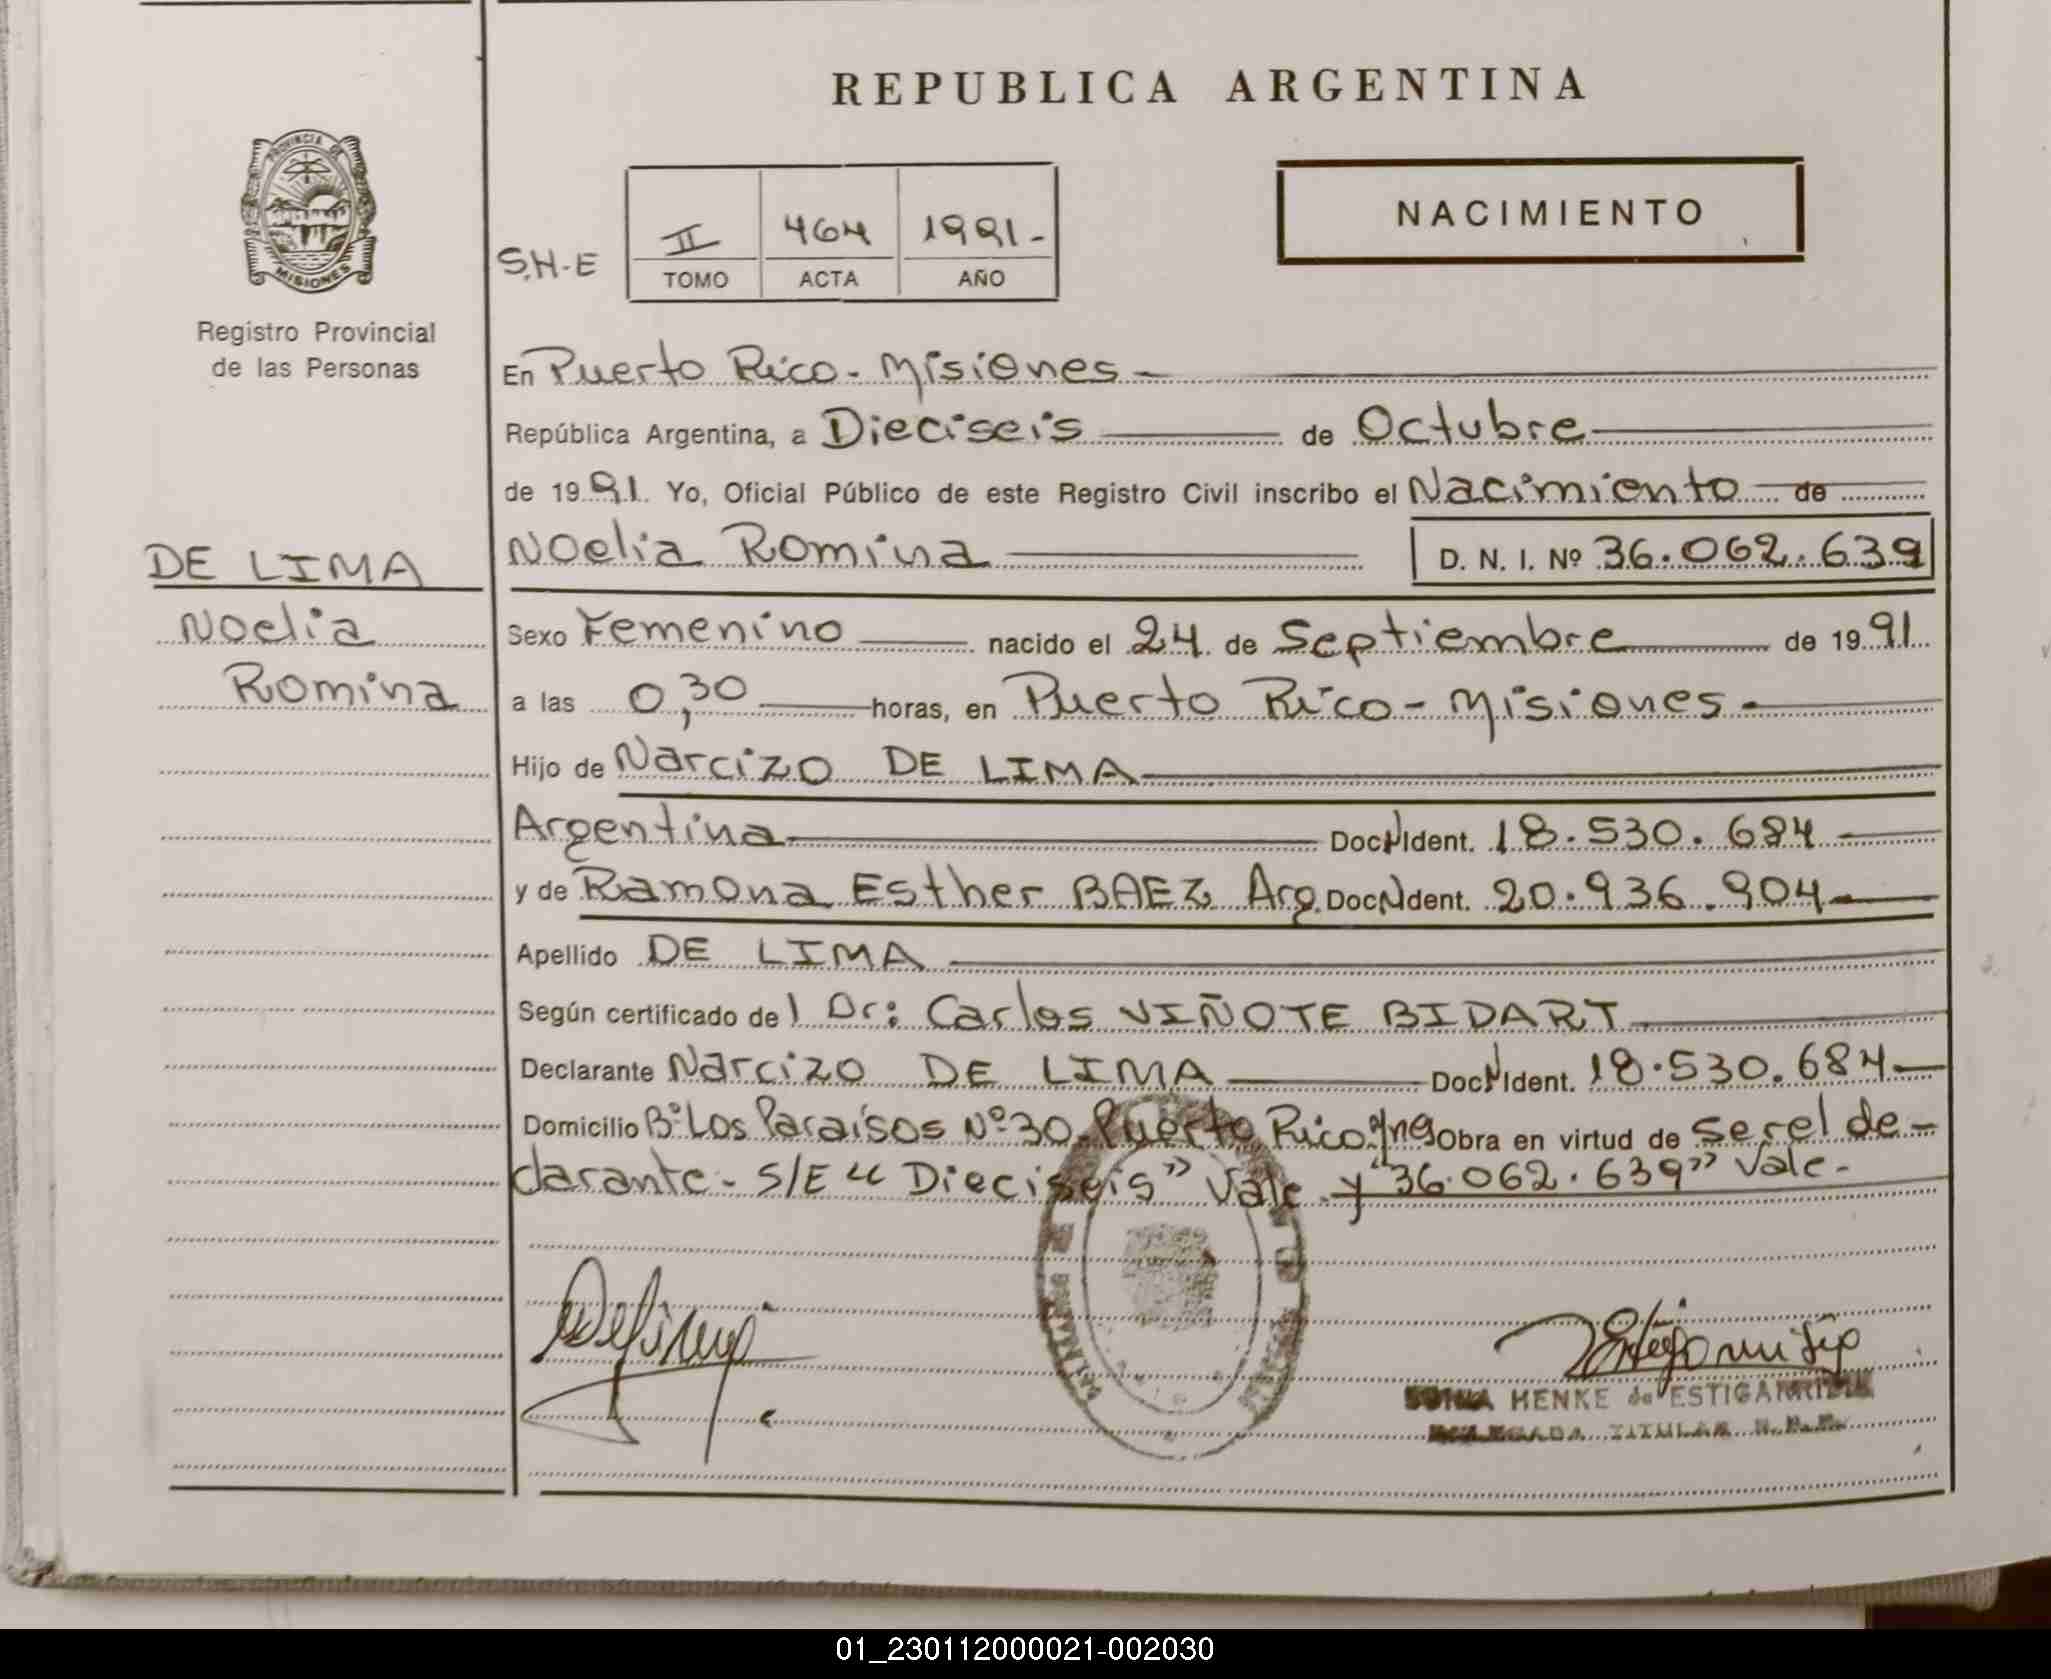 REPUBLICA ARGENTINA
PROVINCIA DE
MISIONES
Registro Provincial
de las Personas
NACIMIENTO
S.H-E
II 464 1991-
TOMO ACTA AÑO
En Puerto Rico - Misiones -
República Argentina, a Dieciseis de Octubre
de 1991. Yo, Oficial Público de este Registro Civil inscribo el Nacimiento de
DE LIMA
Noelia
Romina
Noelia Romina D. N. I. Nº 36.062.639
Sexo Femenino nacido el 24 de Septiembre de 1991
a las 0,30 horas, en Puerto Rico - Misiones -
Hijo de Narcizo DE LIMA
Argentina Doc N Ident. 18.530.684
y de Ramona Esther BAEZ Arg. Doc N Ident. 20.936.904
Apellido DE LIMA
Según certificado del Dr: Carlos VIÑOTE BIDART
Declarante Narcizo DE LIMA Doc N Ident. 18.530.684
Domicilio Bº Los Paraísos Nº 30 Puerto Rico Obra en virtud de ser el de-
clarante - S/E "Dieciseis" Vale y "36.062.639" Vale -
SONIA HENKE de ESTIGARRIBIA
DELEGADA TITULAR R.P.P.
01_230112000021-002030